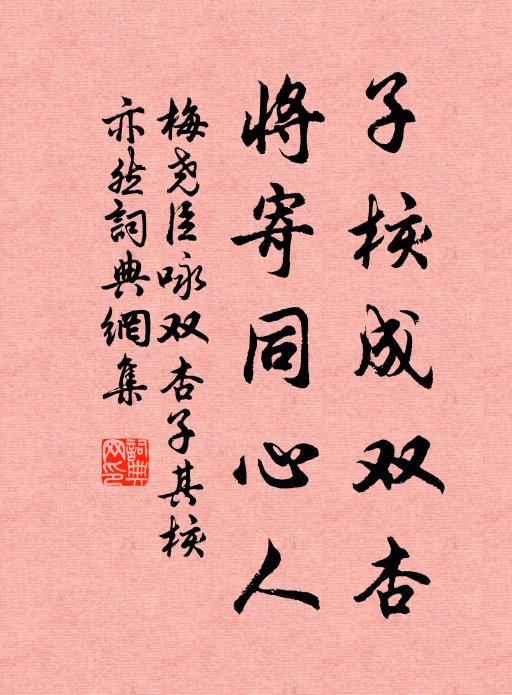 子核成双杏
将寄同心人
梅尧臣咏双杏子其核
亦然詞典網集
詞典網印